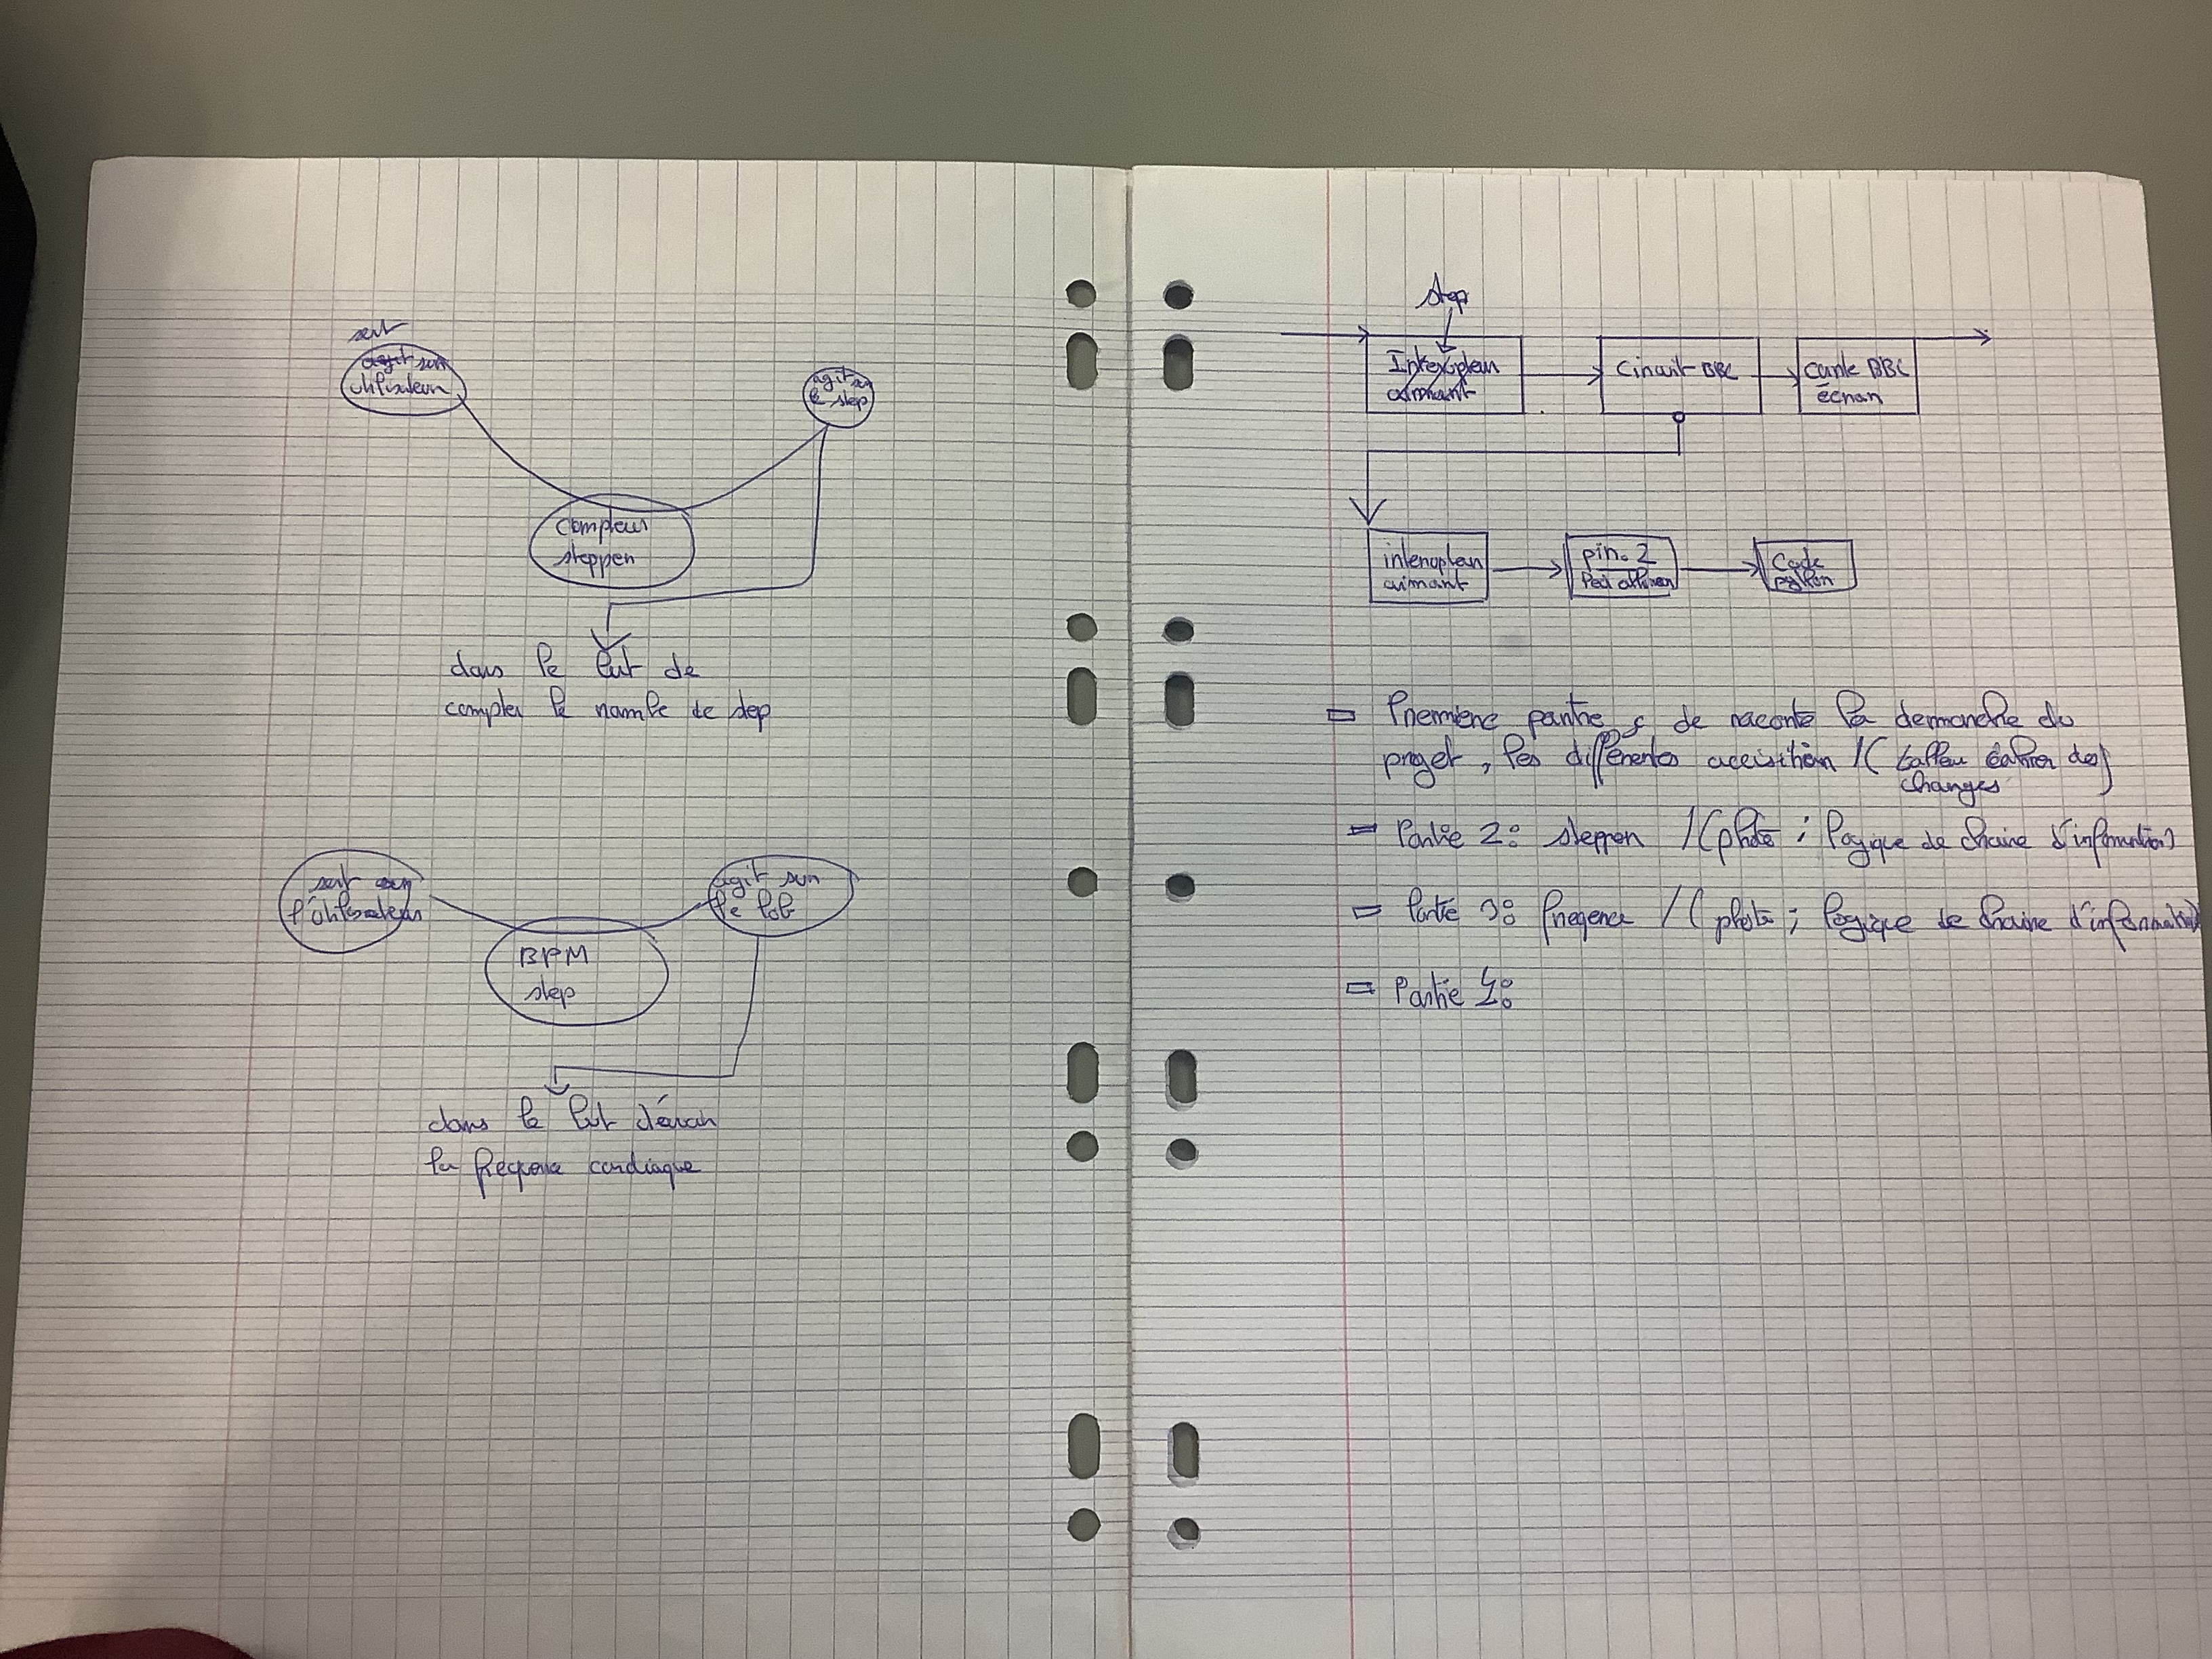 sert
utilisateur
agit sur
le step
Compteur
stepper
dans le but de
compter le nombre de step
sert
l'utilisateur
agit sur
le
BPM
step
dans le but
la cardiaque
step
Interupteur
aimant
Circuit BBC
carte BBC
écran
interupteur
aimant
pin. 2
Code
python
= Première partie de raconte la demande du
projet, les différentes / ( cahier des)
charges
= Partie 2: stepper / (photo ; logique de chaine d'information)
= Partie 3: / ( photo ; logique de chaine d'information)
= Partie 4: